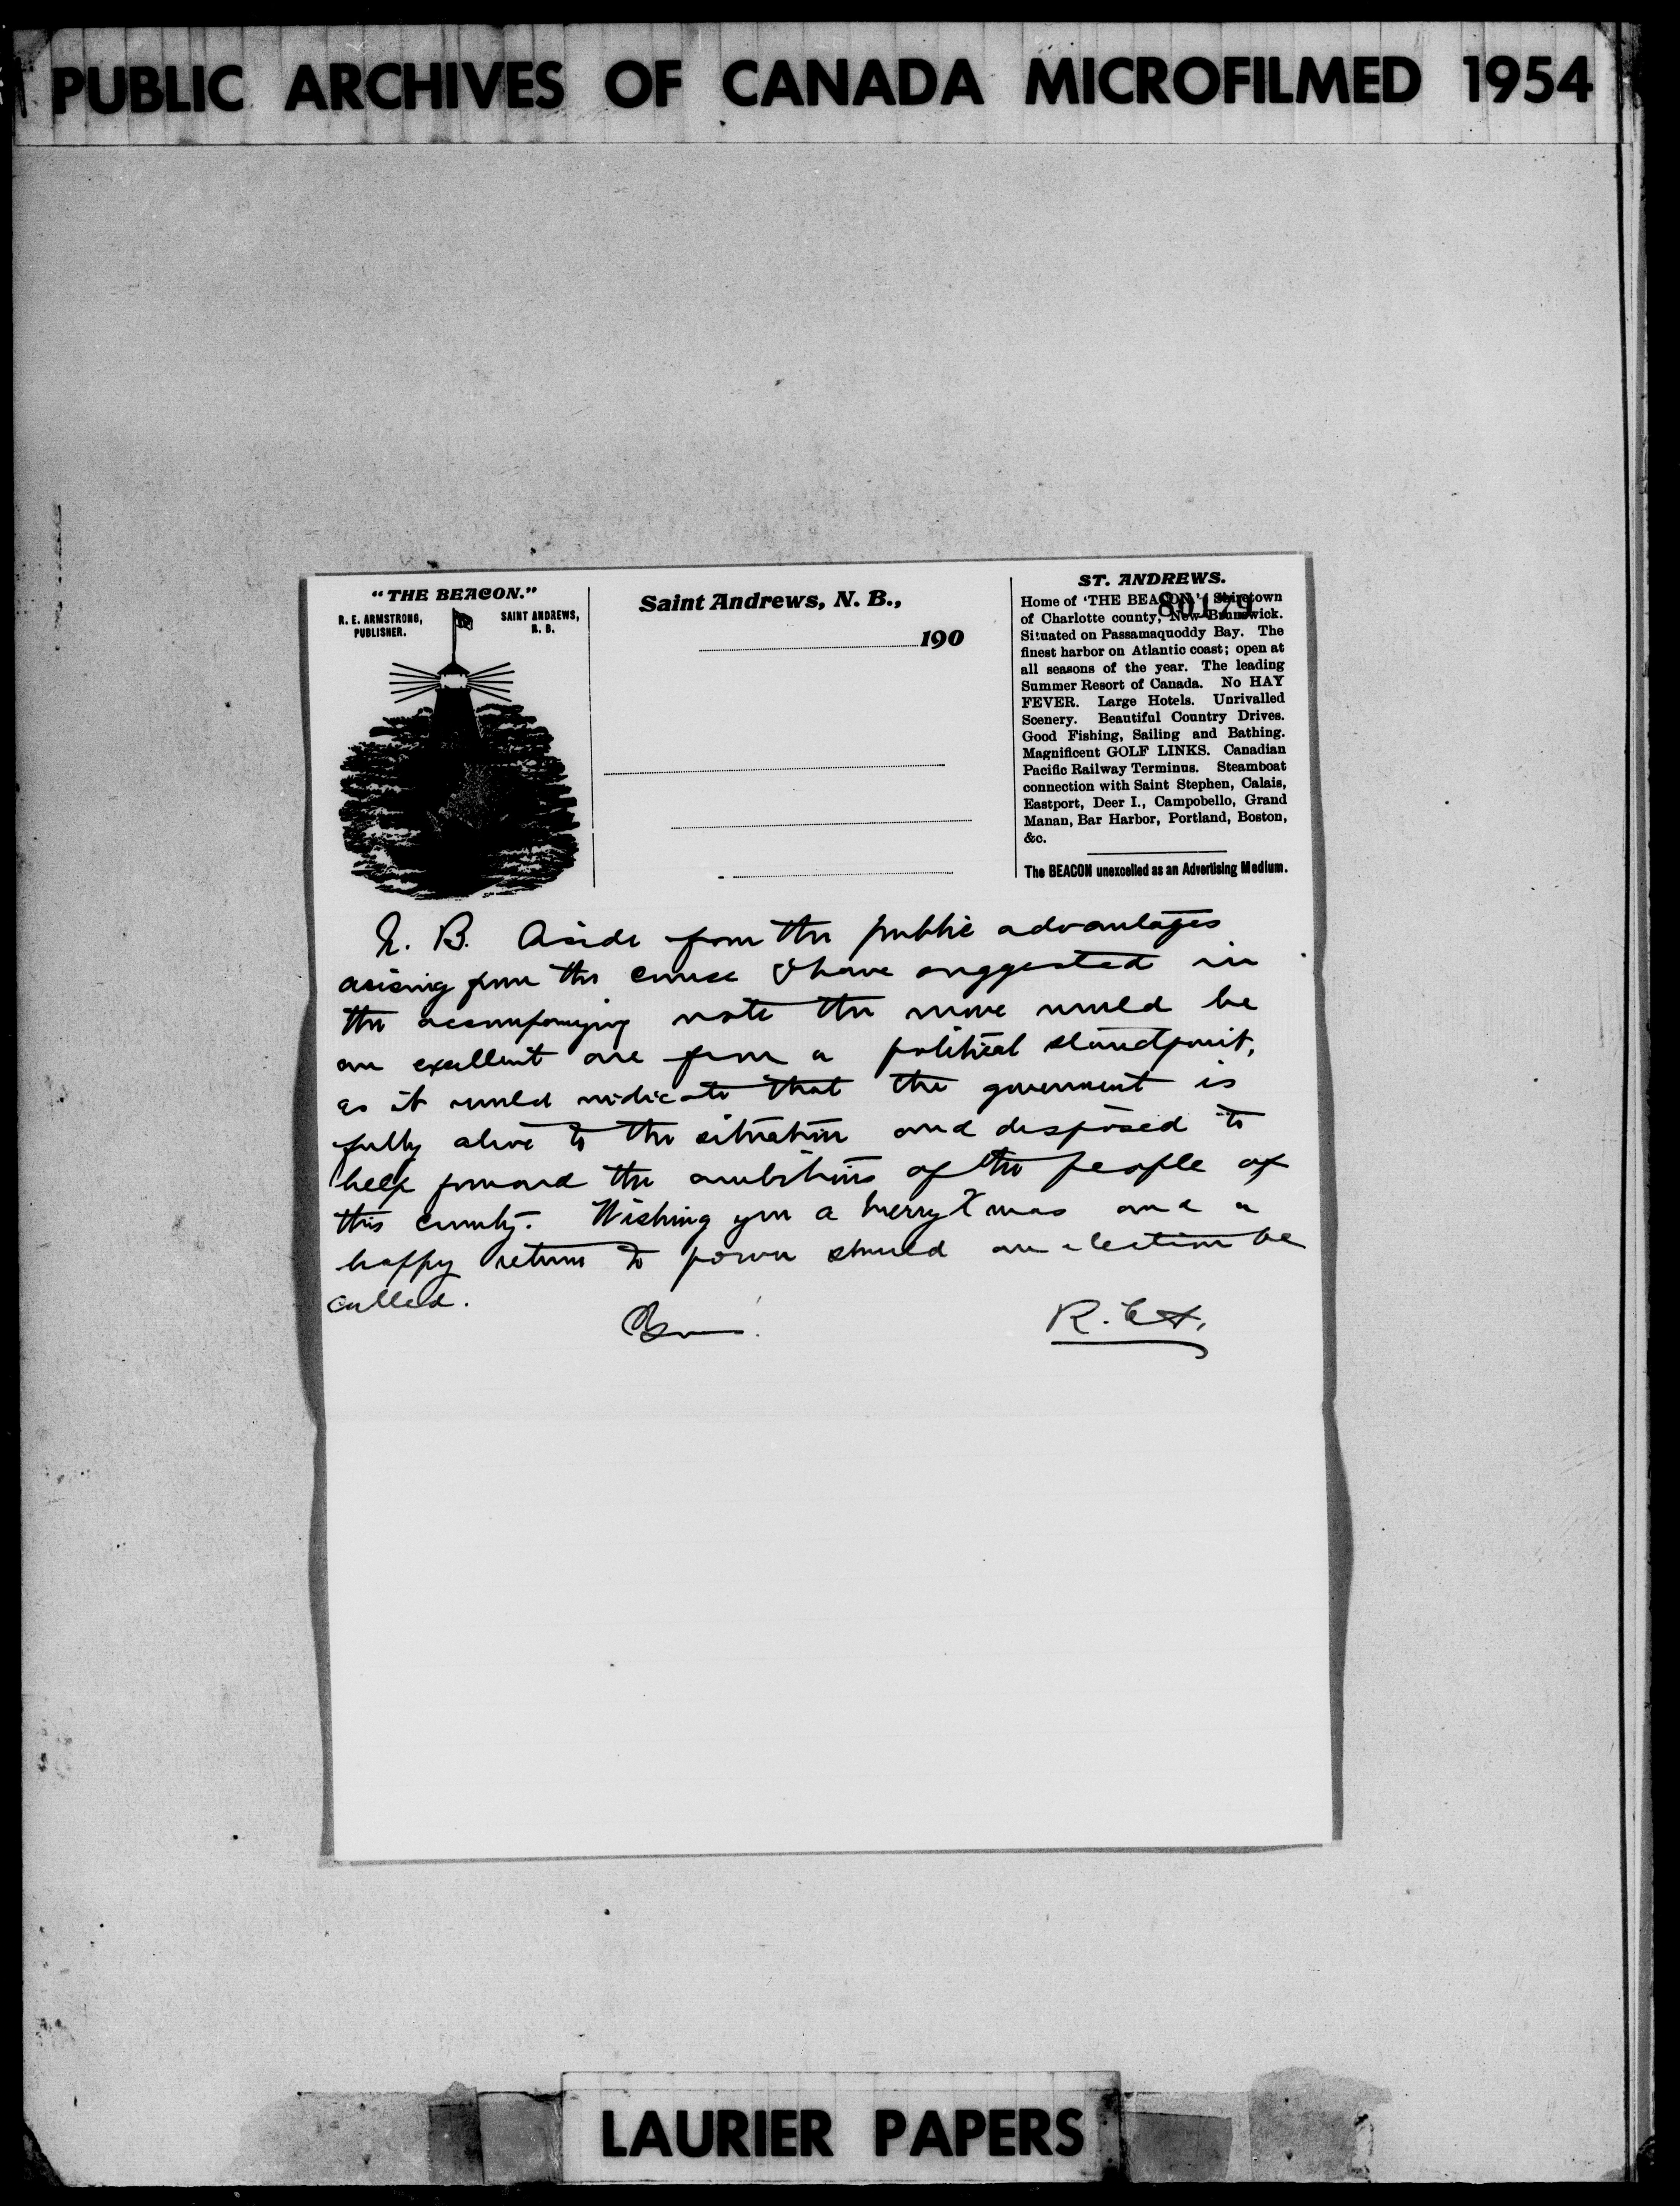 PUBLIC ARCHIVES OF CANADA MICROFILMED 1954
"THE BEACON."
R. E. ARMSTRONG,
PUBLISHER.
SAINT ANDREWS,
N. B.
Saint Andrews, N. B.,
190
ST. ANDREWS.
80179
Home of 'THE BEACON'; Shiretown
of Charlotte county, New Brunswick.
Situated on Passamaquoddy Bay. The
finest harbor on Atlantic coast; open at
all seasons of the year. The leading
Summer Resort of Canada. No HAY
FEVER. Large Hotels. Unrivalled
Scenery. Beautiful Country Drives.
Good Fishing, Sailing and Bathing.
Magnificent GOLF LINKS. Canadian
Pacific Railway Terminus. Steamboat
connection with Saint Stephen, Calais,
Eastport, Deer I., Campobello, Grand
Manan, Bar Harbor, Portland, Boston,
&c.
The BEACON unexcelled as an Advertising Medium.
N. B. Aside from the public advantages
arising from the course I have suggested in
the accompanying note the move would be
an excellent one from a political standpoint,
as it would indicate that the government is
fully alive to the situation and disposed to
help forward the ambitions of the people of
this county. Wishing you a merry Xmas and a
happy return to power should an election be
called.
Yours.
R. E. A.
LAURIER PAPERS